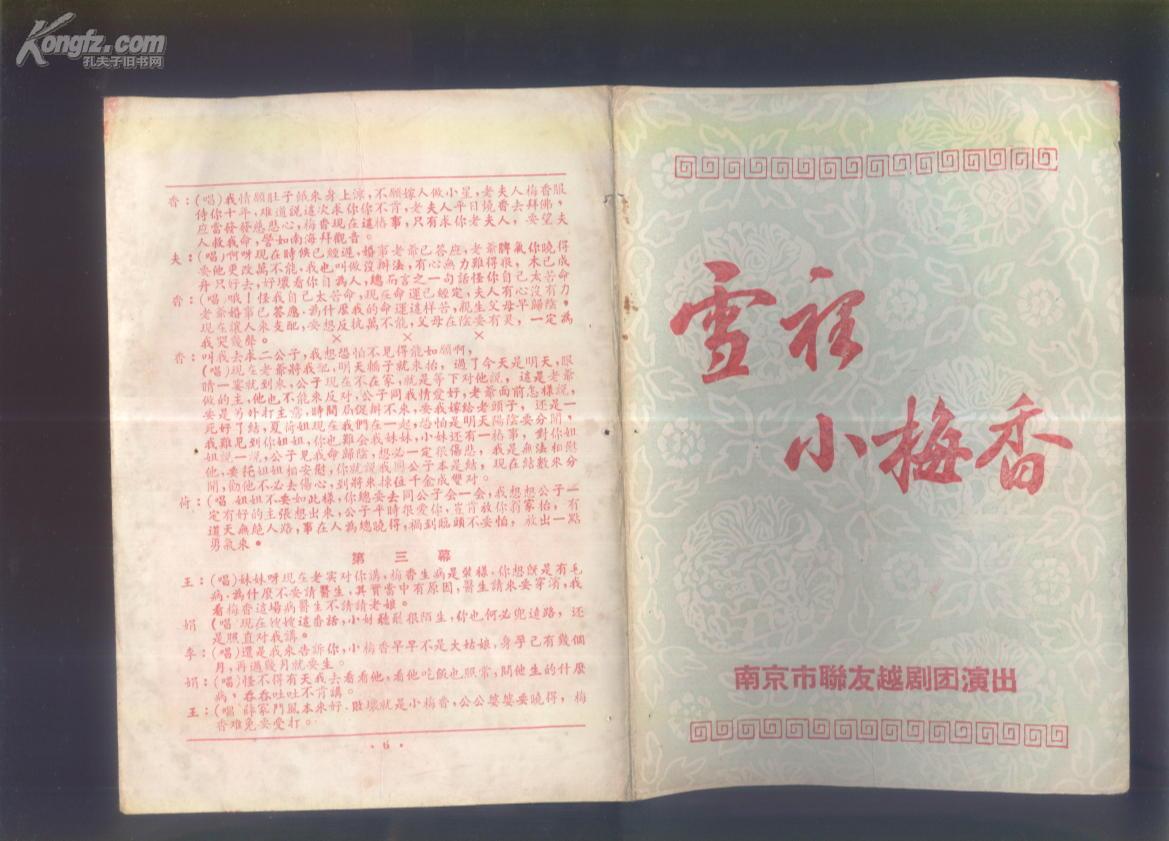 Kongfz.com
孔夫子旧书网
香:(唱)我情願肚子餓來身上涼,不願嫁人做小星,老夫人梅香服
侍你十年,难道説這次求你你不肯,老夫人平日燒香去拜佛,
應當發發慈悲心,梅香現在這樁事,只有求你老夫人,要望夫
人救我命,譬如南海拜觀音。
夫:(唱)啊呀現在時候已經遲,婚事老爺已答應,老爺脾氣你曉得
要他更改萬不能,我也叫做沒辦法,有心無力難得很,木已成
舟只好去,好壞看你自為人,總而言之一句話怪你自己太苦命
香:(唱)哦!怪我自己太苦命,現在命運已經定,夫人有心沒有力
老爺婚事已答應,為什麼我的命運這样苦,親生父母早歸陰,
現在讓人來支配,要想反抗萬不能,父母在陰要有灵,一定為
我哭幾聲。
× × ×
香:叫我去求二公子,我想恐怕不見得能如願啊,
(唱)現在老爺將我配,明天轎子就來抬,過了今天是明天,眼
睛一霎就到來,公子現在不在家,就是等下对他説,這是老爺
做的主,他也不能來反对,公子同我情爱好,老爺面前怎樣説,
要是另外打主意,時間局促辦不來,要我嫁給老頭子,还是一
死好了結,夏荷姐現在我們在一起,恐怕是明天陽陰要分開,
我難見到你姐姐,你也難会我妹妹,小妹还有一樁事,對你姐
姐説一説,公子見我命歸陰,想必一定很傷悲,我是無法相慰
他,委托姐姐相安慰,你就說我同公子本是結,現在結數來分
開,勸他不必去傷心,到將來揀位千金成雙对。
荷:(唱 姐姐不要如此様,你總要去同公子会一会,我想想公子一
定有好的主張想出來,公子平時很爱你,豈肯放你翁家抬,有
道天無絶人路,事在人為總曉得,禍到臨頭不要怕,放出一點
勇氣來。
第三幕
王:(唱)妹妹呀現在老实对你講,梅香生病是裝様,你想既是有毛
病,為什麼不要請醫生,其實當中有原因,醫生請來要穿濱,我
看梅香這場病醫生不請請老娘。
娟 (唱 現在嫂嫂這番話,小姑聽聽很陌生,你也何必兜遠路,还
是照直对我講。
李:(唱)還是我來告訴你,小梅香早早不是大姑娘,身孕已有幾個
月,再過幾月就要生。
娟:(唱)怪不得有天我去看看他,看他吃飯也照常,問他生的什麼
病,吞吞吐吐不肯講。
王:(唱 薛家門風本來好,敗壞就是小梅香,公公婆婆要曉得,梅
香难免要受打。
·6·
雪裡
小梅香
南京市聯友越剧团演出